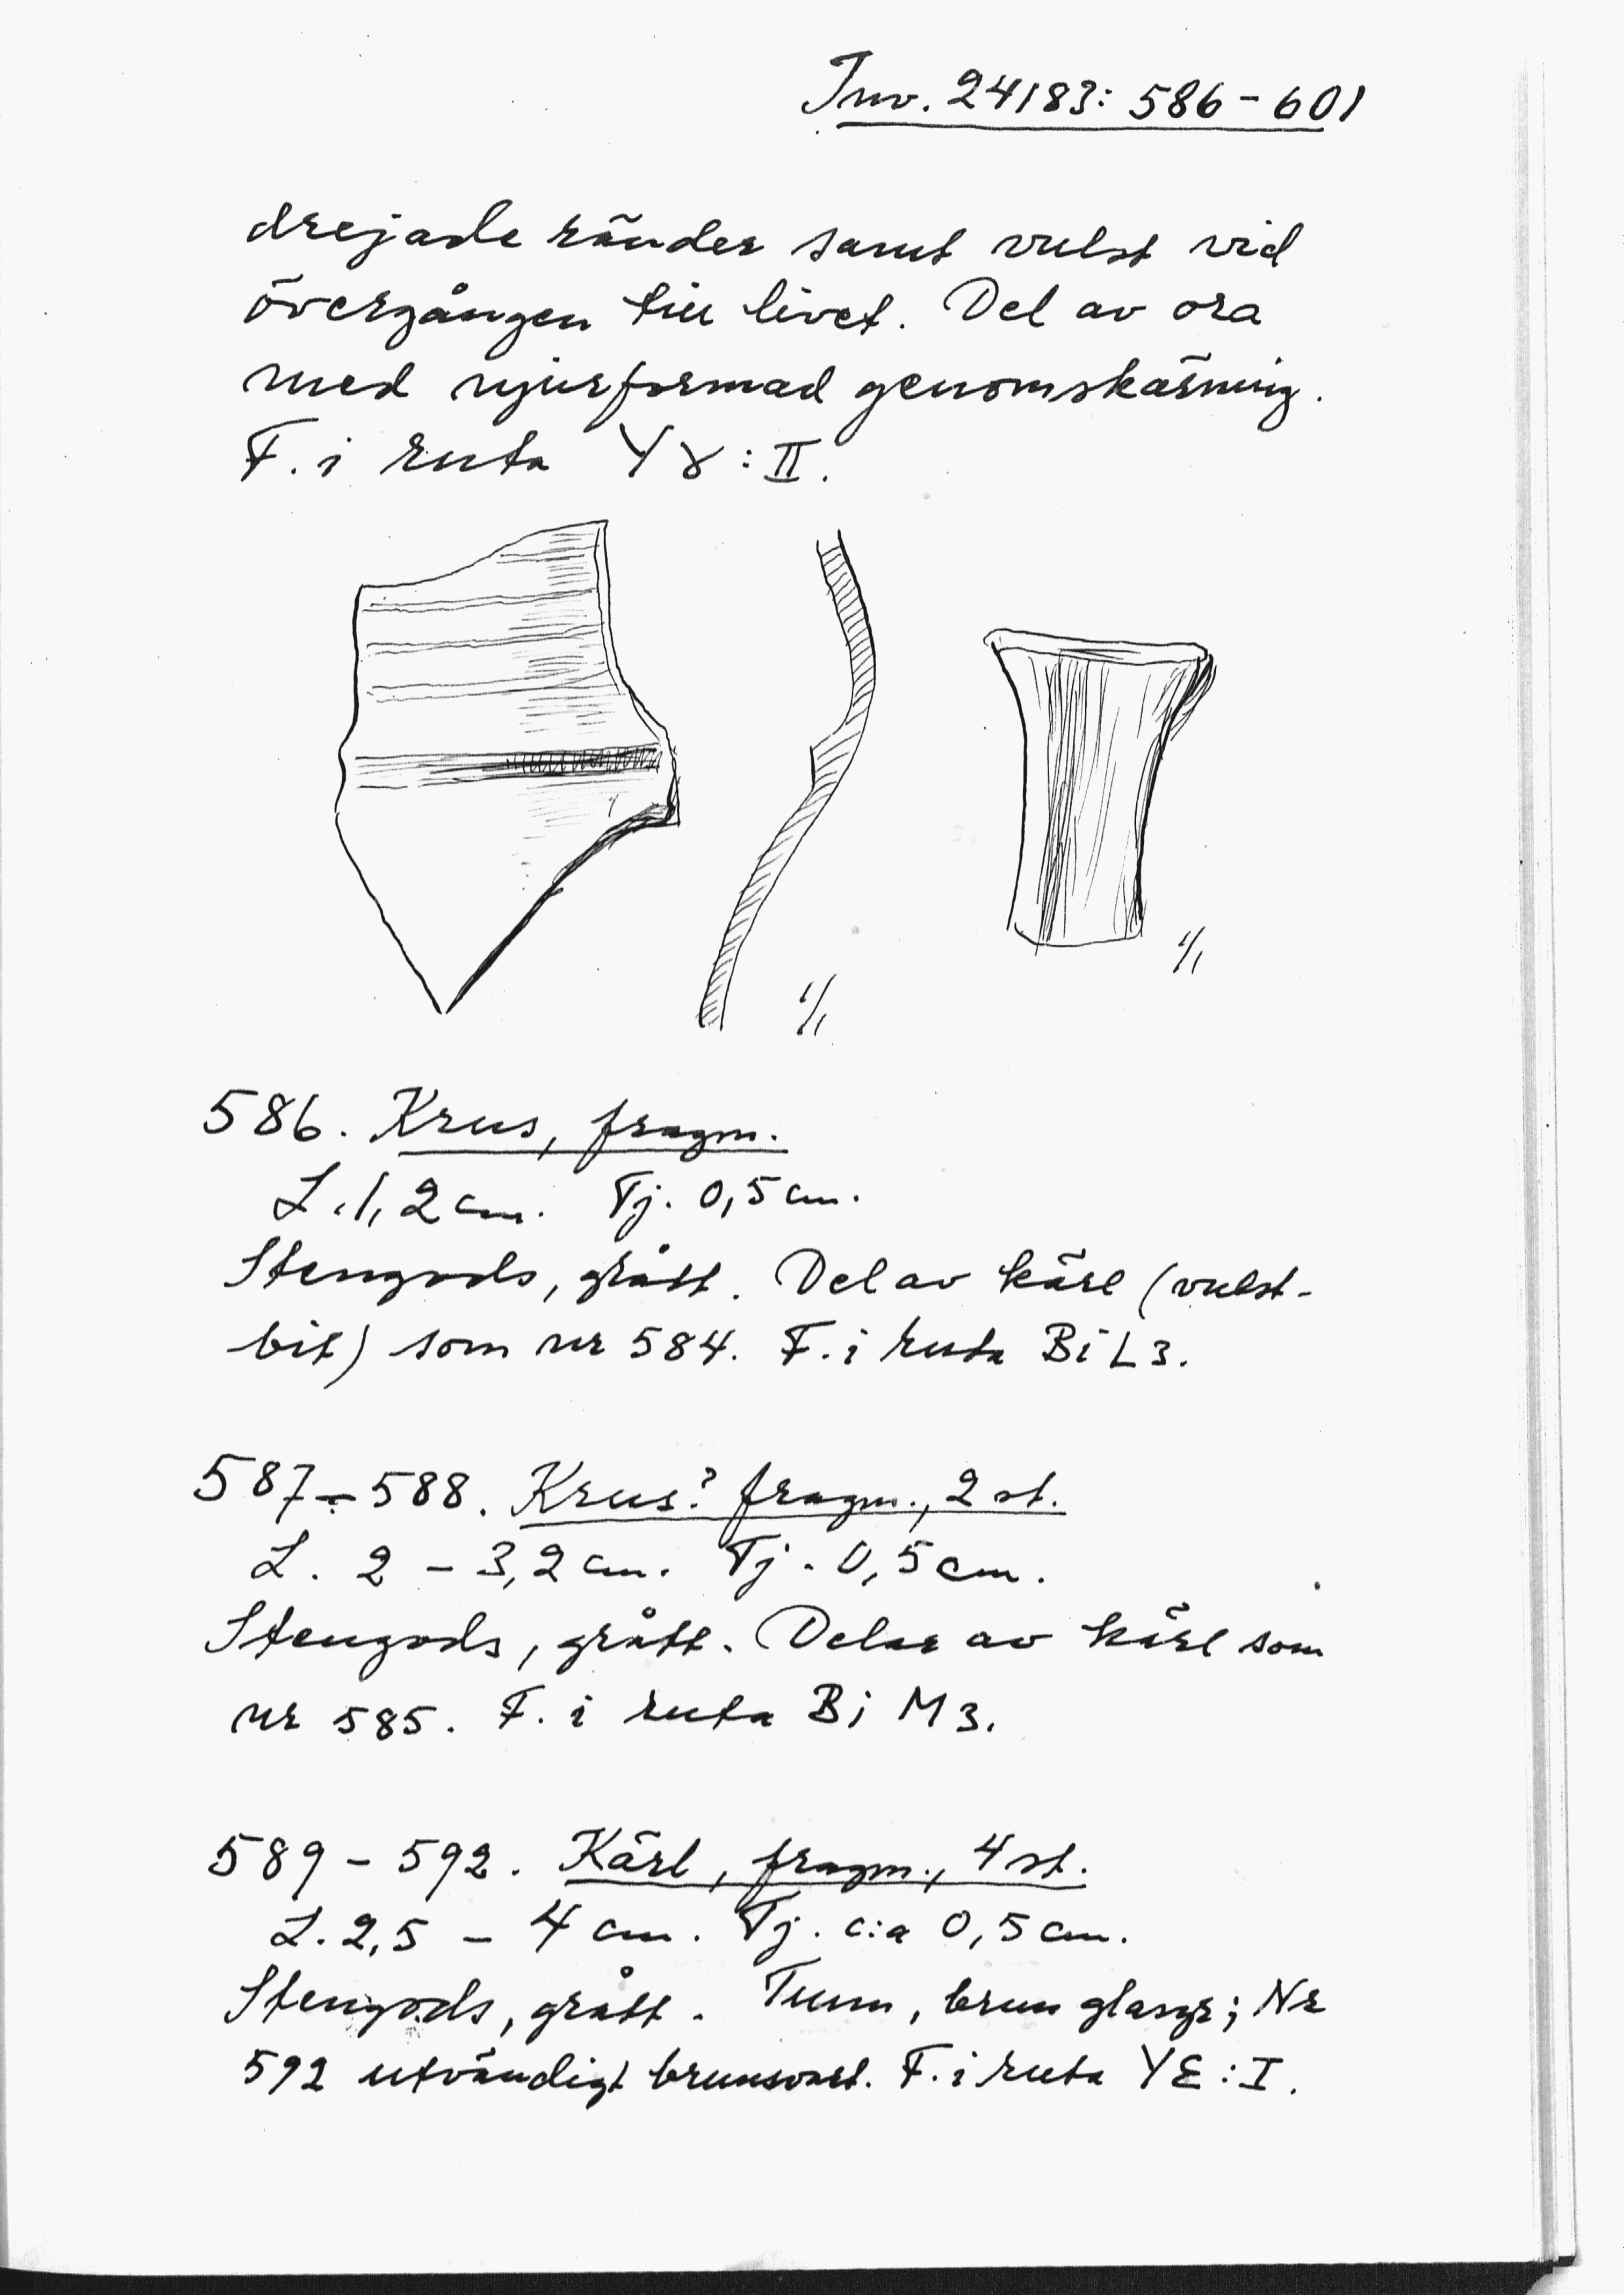 Inv. 24183: 586-601
drejade ränder samt vulst vid
övergången till livet. Del av öra
med njurformad genomskärning.
F. i ruta Yγ:II.
1/1
1/1
586. Krus, fragm.
L. 1,2 cm. Tj. 0,5 cm.
Stengods, grått. Del av kärl (vulst-
bit) som nr 584. F. i ruta Bi L3.
587-588. Krus? fragm., 2 st.
L. 2 - 3,2 cm. Tj. 0,5 cm.
Stengods, grått. Delar av kärl som
nr 585. F. i ruta Bi M3.
589-592. Kärl, fragm., 4 st.
L. 2,5 - 4 cm. Tj. c:a 0,5 cm.
Stengods, grått. Tunn, brun glasyr; Nr
592 utvändigt brunsvart. F. i ruta YE:I.